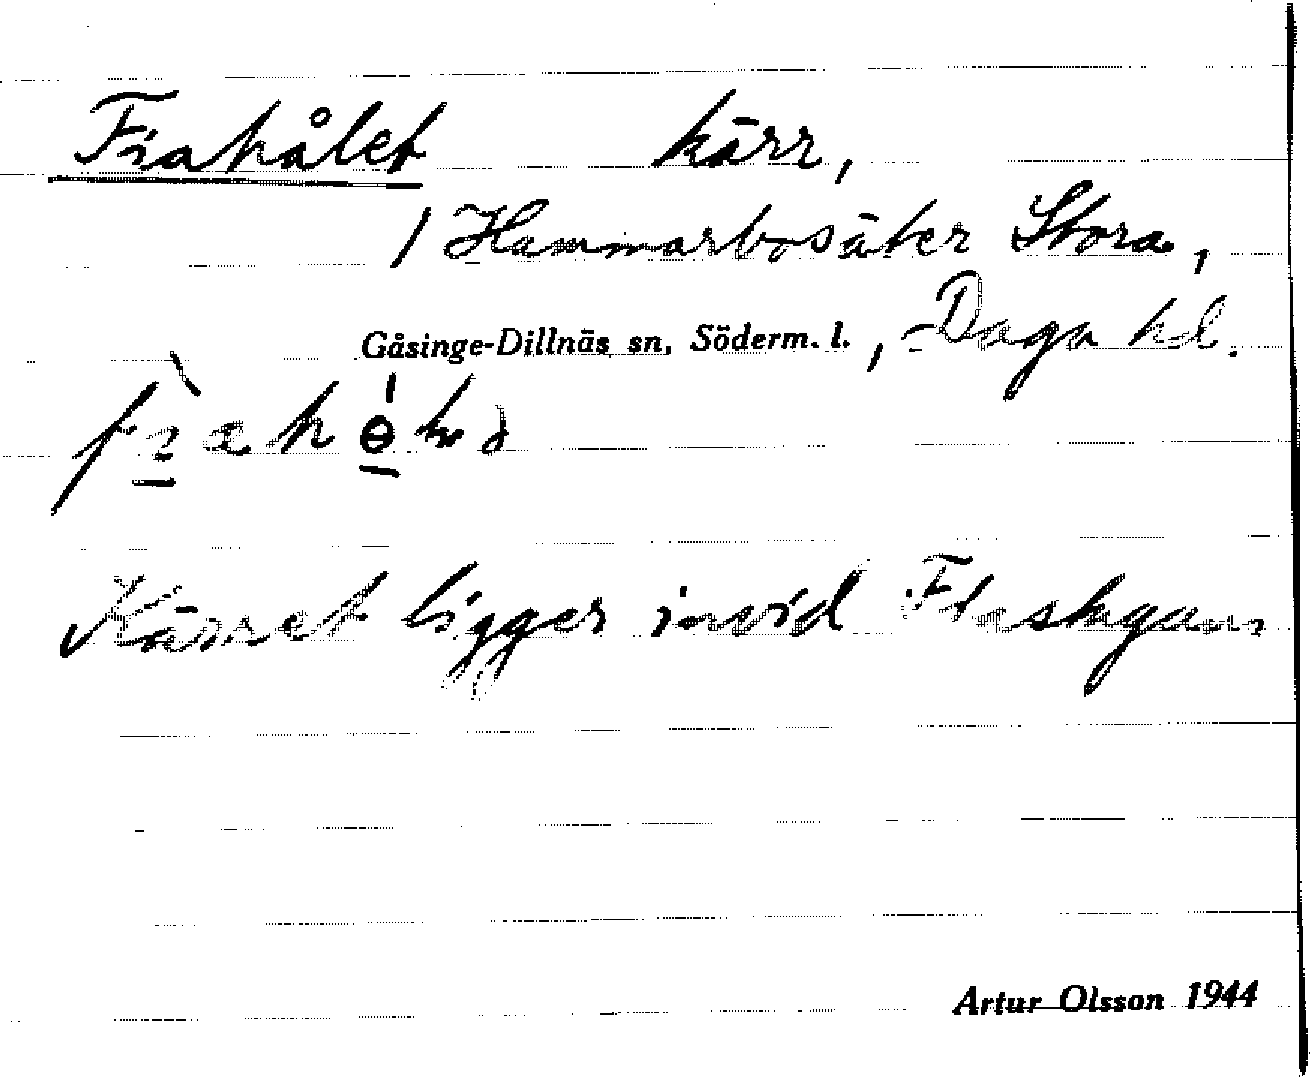 Fiahålet kärr,
/ Hammarbosäter Stora,
Gåsinge-Dillnäs sn, Söderm. l., Daga hd.
Kärret ligger invid
Artur Olsson 1944